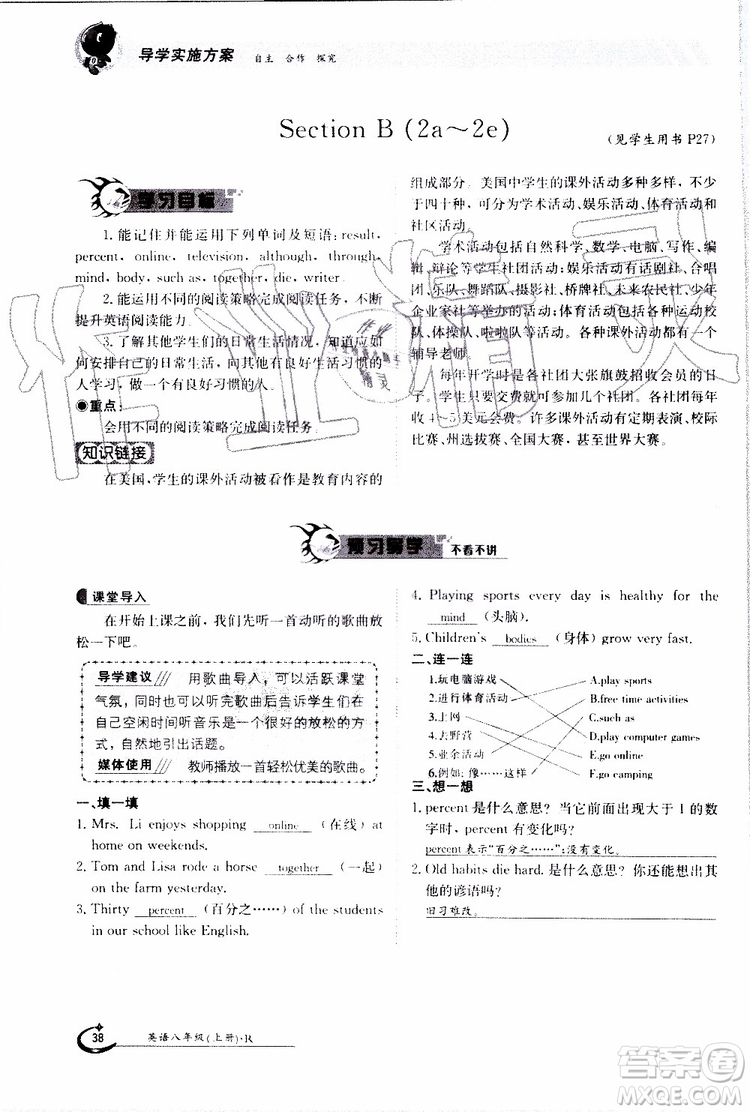 导学实施方案 自主 合作 探究
Section B (2a～2e)
(见学生用书 P27)
学习目标
1.能记住并能运用下列单词及短语:result,
percent, online, television, although, through,
mind, body, such as, together, die, writer.
2.能运用不同的阅读策略完成阅读任务,不断
提升英语阅读能力。
3.了解其他学生们的日常生活情况,知道应如
何安排自己的日常生活,向有良好生活习惯的
人学习,做一个有良好习惯的人。
●重点:
会用不同的阅读策略完成阅读任务。
知识链接
在美国,学生的课外活动被看作是教育内容的
组成部分。美国中学生的课外活动多种多样,不少
于四十种,有学术活动、娱乐活动、体育活动和
社区活动。
学术活动包括自然科学、数学、电脑、写作、编
辑、辩论等学生社团活动;娱乐活动有话剧社、合唱
团、乐队、舞蹈队、摄影社、桥牌社、未来农民社、少年
企业家社等举办的活动;体育活动包括各种运动校
队、体操队、啦啦队等活动。各种活动都有一个
辅导老师。
每年开学时各社团大张旗鼓招收会员的日子
里,学生们可以根据自己的爱好参加几个社团。社团
收 4～5 美元会费。许多课外活动有定期表演、校际
比赛、州选拔赛、全国大赛,甚至世界大赛。
预习导学 不看不讲
课堂导入
在开始上课之前,我们先听一首动听的歌曲放
松一下吧。
导学建议 用歌曲导入,可以活跃课堂
气氛,同时也可以听完歌曲后告诉学生们在
自己空闲时间听音乐是一个很好的放松的方
式,自然地引出话题。
媒体使用 教师播放一首轻松优美的歌曲。
一、填一填
1. Mrs. Li enjoys shopping online (在线) at
home on weekends.
2. Tom and Lisa rode a horse together (一起)
on the farm yesterday.
3. Thirty percent (百分之……) of the students
in our school like English.
4. Playing sports every day is healthy for the
mind (头脑).
5. Children's bodies (身体) grow very fast.
二、连一连
1.玩电脑游戏 A.play sports
2.进行体育活动 B.free time activities
3.上网 C.such as
4.去野营 D.play computer games
5.业余活动 E.go online
6.例如;像……这样 F.go camping
三、想一想
1. percent 是什么意思? 当它前面出现大于 1 的数
字时,percent 有变化吗?
percent 表示“百分之……”;没有变化。
2. Old habits die hard. 是什么意思? 你还能想到其
他的谚语吗?
旧习难改。
38 英语八年级(上册)·R
作业精灵
答案圈
MXQE.COM